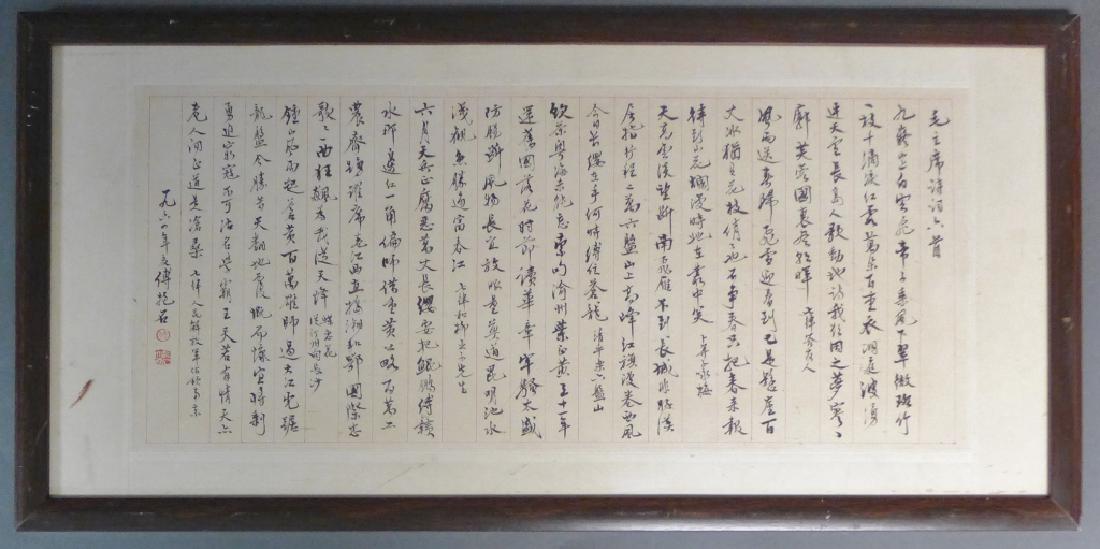 毛主席詩詞六首
九嶷山上白雲飛帝子乘風下翠微斑竹
一枝千滴淚紅霞萬朵百重衣洞庭波湧
連天雪長島人歌動地詩我欲因之夢寥々
廓芙蓉國裏盡朝暉 七律答友人
風雨送春歸飛雪迎春到已是懸崖百
丈冰猶有花枝俏々也不爭春只把春來報
待到山花爛漫時她在叢中笑 卜算子詠梅
天高雲淡望斷南飛雁不到長城非好漢
屈指行程二萬六盤山上高峰紅旗漫卷西風
今日長纓在手何時縛住蒼龍 清平樂六盤山
飲茶粵海未能忘索句渝州葉正黃三十一年
還舊國落花時節讀華章牢騷太盛
防腸斷風物長宜放眼量莫道昆明池水
淺觀魚勝過富春江 七律和柳亞子先生
六月天兵征腐惡萬丈長纓要把鯤鵬縛贛
水那邊紅一角偏師借重黃公略百萬工
農齊踴躍席卷江西直搗湘和鄂國際悲
歌々一曲狂飆為我從天降 蝶戀花
從汀州向長沙
鍾山風雨起蒼黃百萬雄師過大江虎踞
龍盤今勝昔天翻地覆慨而慷宜將剩
勇追窮寇不可沽名學霸王天若有情天亦
老人間正道是滄桑 七律人民解放軍佔領南京
一九六四年 傅抱石